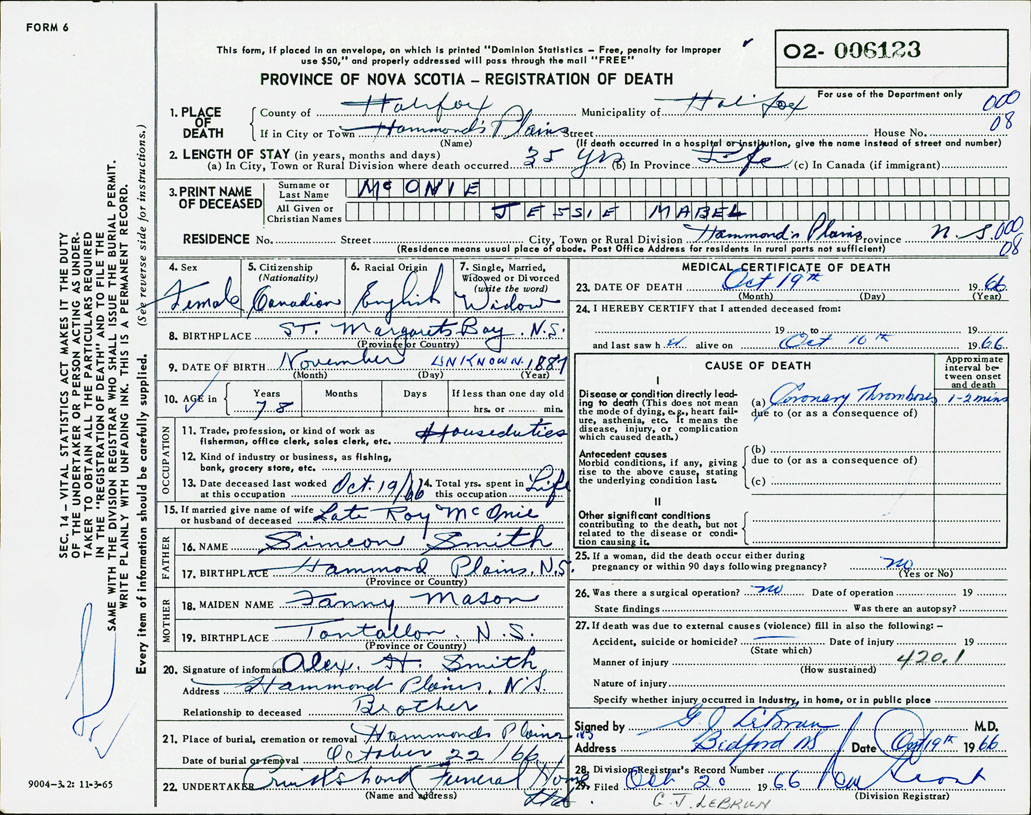 FORM 6
This form, if placed in an envelope, on which is printed "Dominion Statistics – Free, penalty for improper
use $50," and properly addressed will pass through the mail "FREE"
PROVINCE OF NOVA SCOTIA – REGISTRATION OF DEATH
02- 006123
For use of the Department only
000
08
1. PLACE OF DEATH
County of Halifax Municipality of Halifax
If in City or Town Hammond's Plains Street House No.
(Name) (If death occurred in a hospital or institution, give the name instead of street and number)
2. LENGTH OF STAY (in years, months and days)
(a) In City, Town or Rural Division where death occurred 35 yrs (b) In Province Life (c) In Canada (if immigrant)
3. PRINT NAME OF DECEASED
Surname or Last Name McONIE
All Given or Christian Names JESSIE MABEL
RESIDENCE No. Street City, Town or Rural Division Hammond's Plains Province N.S. 000
08
(Residence means usual place of abode. Post Office Address for residents in rural parts not sufficient)
4. Sex Female
5. Citizenship (Nationality) Canadian
6. Racial Origin English
7. Single, Married, Widowed or Divorced (write the word) Widow
8. BIRTHPLACE ST. Margarets Bay, N.S.
(Province or Country)
9. DATE OF BIRTH November UNKNOWN 1887
(Month) (Day) (Year)
10. AGE in Years 78 Months Days If less than one day old hrs. or min.
OCCUPATION
11. Trade, profession, or kind of work as fisherman, office clerk, sales clerk, etc. Houseduties
12. Kind of industry or business, as fishing, bank, grocery store, etc.
13. Date deceased last worked at this occupation Oct. 19/66 14. Total yrs. spent in this occupation Life
15. If married give name of wife or husband of deceased Late Roy McOnie
FATHER
16. NAME Simeon Smith
17. BIRTHPLACE Hammond Plains, N.S.
(Province or Country)
MOTHER
18. MAIDEN NAME Fanny Mason
19. BIRTHPLACE Tantallon, N.S.
(Province or Country)
20. Signature of informant Alex. H. Smith
Address Hammond Plains, N.S.
Relationship to deceased Brother
21. Place of burial, cremation or removal Hammonds Plains NS
Date of burial or removal October 22/66
22. UNDERTAKER Cruikshank Funeral Home
(Name and address) Ltd.
MEDICAL CERTIFICATE OF DEATH
23. DATE OF DEATH Oct 19th 1966
(Month) (Day) (Year)
24. I HEREBY CERTIFY that I attended deceased from:
19 to 19
and last saw h alive on Oct 10th 1966
CAUSE OF DEATH
Approximate interval between onset and death
I
Disease or condition directly leading to death (This does not mean the mode of dying, e.g., heart failure, asthenia, etc. It means the disease, injury, or complication which caused death.)
(a) Coronary Thrombosis 1-2 mins
due to (or as a consequence of)
Antecedent causes
Morbid conditions, if any, giving rise to the above cause, stating the underlying condition last.
(b)
due to (or as a consequence of)
(c)
II
Other significant conditions
contributing to the death, but not related to the disease or condition causing it.
25. If a woman, did the death occur either during pregnancy or within 90 days following pregnancy? no
(Yes or No)
26. Was there a surgical operation? no Date of operation 19
State findings Was there an autopsy?
27. If death was due to external causes (violence) fill in also the following: –
Accident, suicide or homicide? Date of injury 19
(State which)
Manner of injury 420.1
(How sustained)
Nature of injury
Specify whether injury occurred in industry, in home, or in public place
Signed by G J LeBrun M.D.
Address Bedford NS Date Oct 19th 1966
28. Division Registrar's Record Number
29. Filed Oct 20 1966
(Division Registrar)
G. J. LEBRUN
SEC. 14 – VITAL STATISTICS ACT MAKES IT THE DUTY
OF THE UNDERTAKER OR PERSON ACTING AS UNDER-
TAKER TO OBTAIN ALL THE PARTICULARS REQUIRED
IN THE "REGISTRATION OF DEATH" AND TO FILE THE
SAME WITH THE DIVISION REGISTRAR WHO SHALL ISSUE THE BURIAL PERMIT.
WRITE PLAINLY WITH UNFADING INK. THIS IS A PERMANENT RECORD.
Every item of information should be carefully supplied. (See reverse side for instructions.)
9004-3.2: 11-3-65